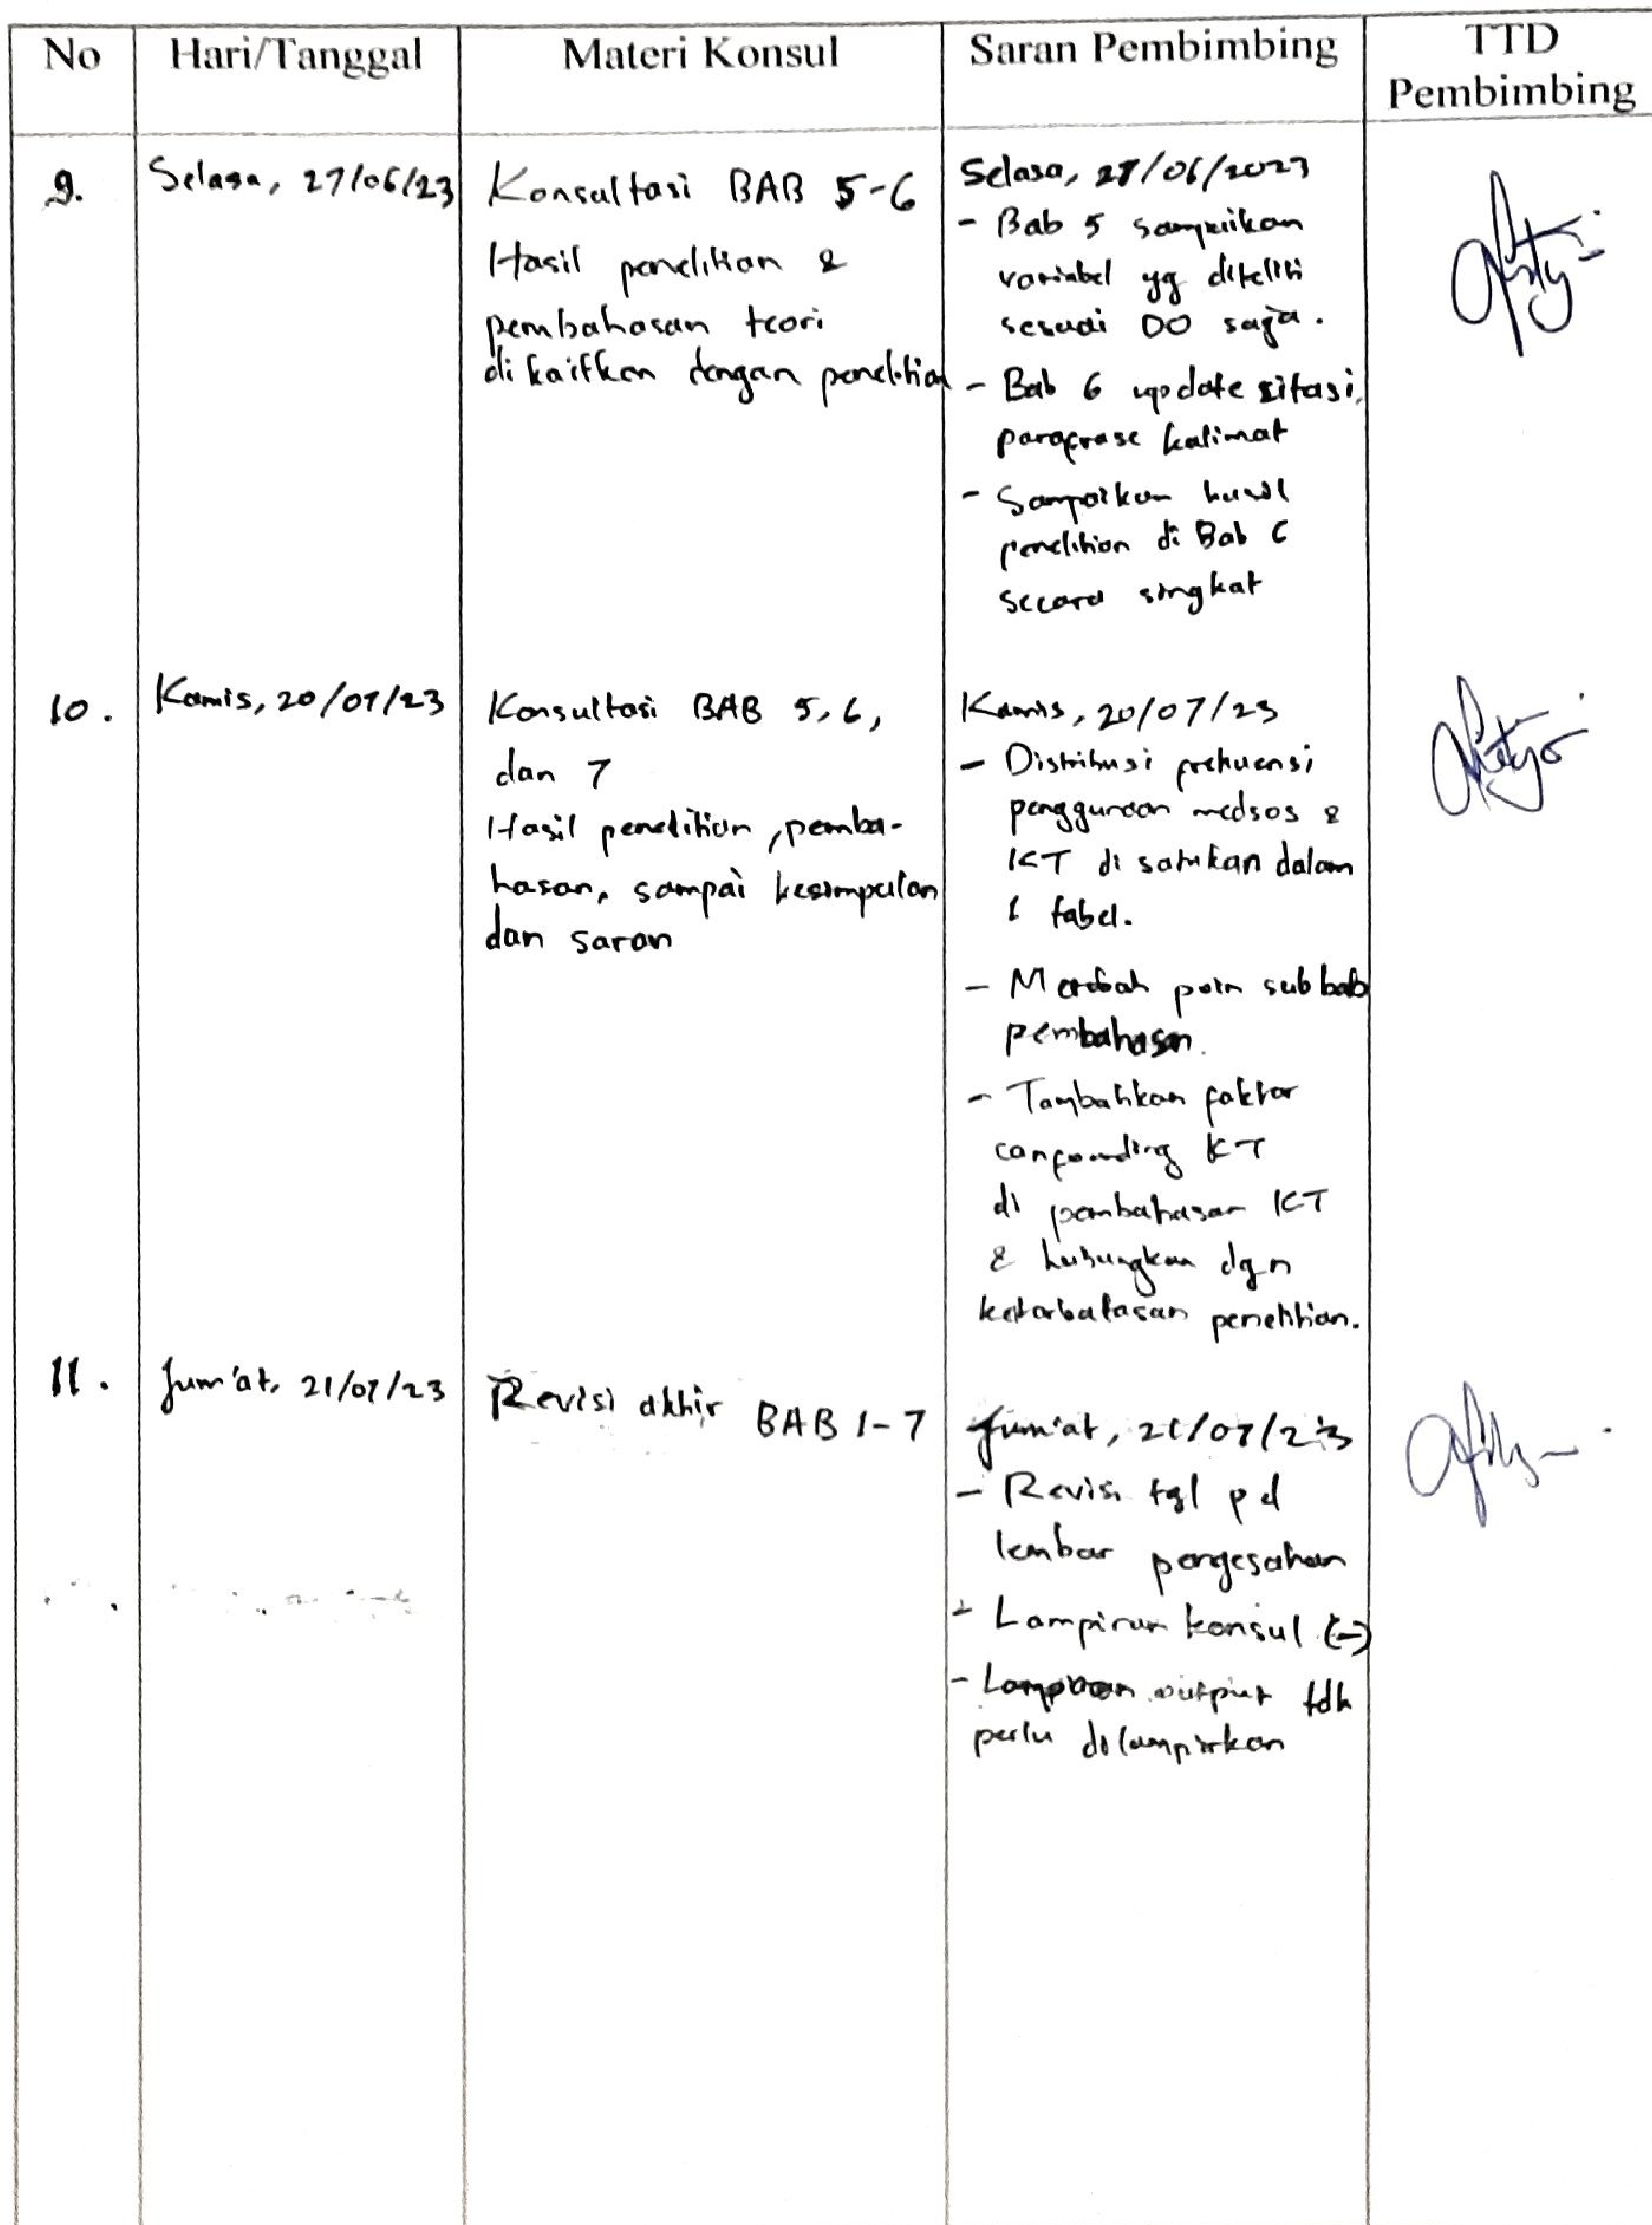 No
Hari/Tanggal
Materi Konsul
Saran Pembimbing
TTD
Pembimbing
9.
Selasa, 27/06/23
Konsultasi BAB 5-6
Hasil penelitian &
pembahasan teori
dikaitkan dengan penelitian
Selasa, 27/06/2023
- Bab 5 sampaikan
variabel yg diteliti
sesuai DO saja.
- Bab 6 update sitasi,
parafrase kalimat
- Sampaikan hasil
penelitian di Bab 6
secara singkat
10.
Kamis, 20/07/23
Konsultasi BAB 5, 6,
dan 7
Hasil penelitian, pemba-
hasan, sampai kesimpulan
dan saran
Kamis, 20/07/23
- Distribusi frekuensi
penggunaan medsos &
KT di satukan dalam
1 tabel.
- Merubah poin sub bab
pembahasan.
- Tambahkan faktor
confounding KT
di pembahasan KT
& hubungkan dgn
keterbatasan penelitian.
11.
Jum'at, 21/07/23
Revisi akhir BAB 1-7
Jum'at, 21/07/23
- Revisi tgl pd
lembar pengesahan
- Lampiran konsul (-)
- Lampiran output tdk
perlu dilampirkan